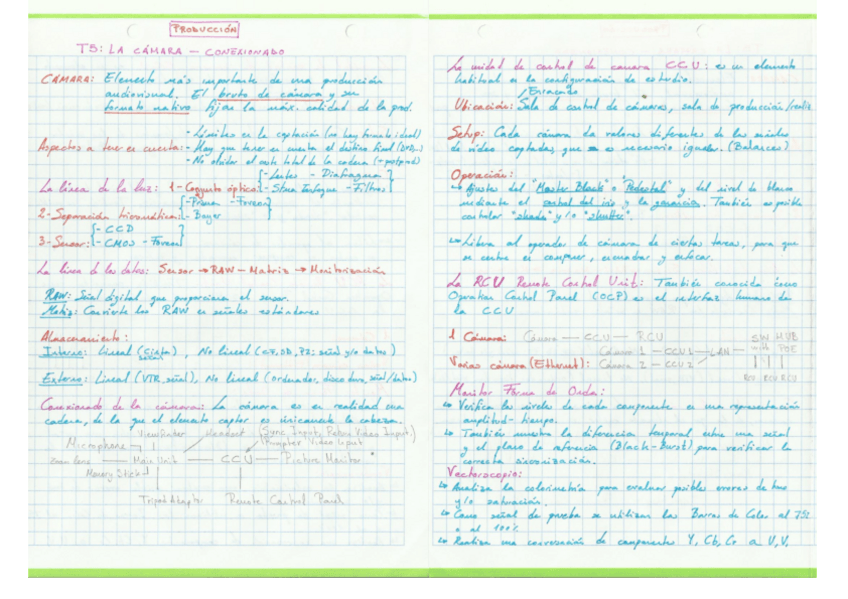 PRODUCCIÓN
T5: LA CÁMARA — CONEXIONADO
CÁMARA: Elemento más importante de una producción
audiovisual. El bruto de cámara y su
formato nativo fijan la máx. calidad de la prod.
- Límites en la captación (no hay formato ideal)
Aspectos a tener en cuenta: - Hay que tener en cuenta el destino final
- No olvidar el resto total de la cadena (+postprod)
La línea de la luz: 1- Conjunto óptico {- Lentes - Diafragma
- Filtros
2- Separación tricromática: {- Prisma - Foveon
- Bayer
3- Sensor: {- CCD
- CMOS - Foveon
La línea de los datos: Sensor → RAW - Matriz → Monitorización
RAW: Señal digital que proporciona el sensor.
Matriz: Convierte los RAW en señales estándares
Almacenamiento:
Interno: Lineal (Cinta señal), No lineal (CF, SD, P2: señal y/o datos)
Externo: Lineal (VTR, señal), No lineal (Ordenador, disco duro, señal/datos)
Conexionado de la cámara: La cámara es en realidad una
cadena, de la que el elemento captor es únicamente la cabeza.
Microphone Viewfinder Headset (Sync Input, Return Video Input)
(Prompter Video Input)
Zoom Lens — Main Unit — CCU — Picture Monitor
Memory Stick
Tripod Adaptor Remote Control Panel
La unidad de control de cámara CCU: es un elemento
habitual en la configuración de estudio.
/Enracado
Ubicación: Sala de control de cámaras, sala de producción/realiz
Setup: Cada cámara da valores diferentes de los niveles
de vídeo captados, que es necesario igualar. (Balances)
Operación:
↳ Ajustes del "Master Black" o "Pedestal" y del nivel de blanco
mediante el control del iris y la ganancia. También es posible
controlar "shade" y/o "shutter".
↳ Libera al operador de cámara de ciertas tareas, para que
se centre en componer, encuadrar y enfocar.
La RCU Remote Control Unit: También conocida como
Operation Control Panel (OCP) es el interfaz humano de
la CCU
1 Cámara: Cámara — CCU — RCU
SW HUB
Cámara 1 — CCU 1 — LAN — POE
Varias cámara (Ethernet): Cámara 2 — CCU 2
RCU RCU RCU
Monitor Forma de Onda:
↳ Verifica los niveles de cada componente en una representación
amplitud-tiempo.
↳ También muestra la diferencia temporal entre una señal
y el pulso de referencia (Black-Burst) para verificar la
correcta sincronización.
Vectorscopio:
↳ Analiza la colorimetría para evaluar posibles errores de tono
y/o saturación.
↳ Como señal de prueba se utilizan las Barras de Color al 75%
o al 100%
↳ Realiza una conversión de componentes Y, Cb, Cr a U, V,